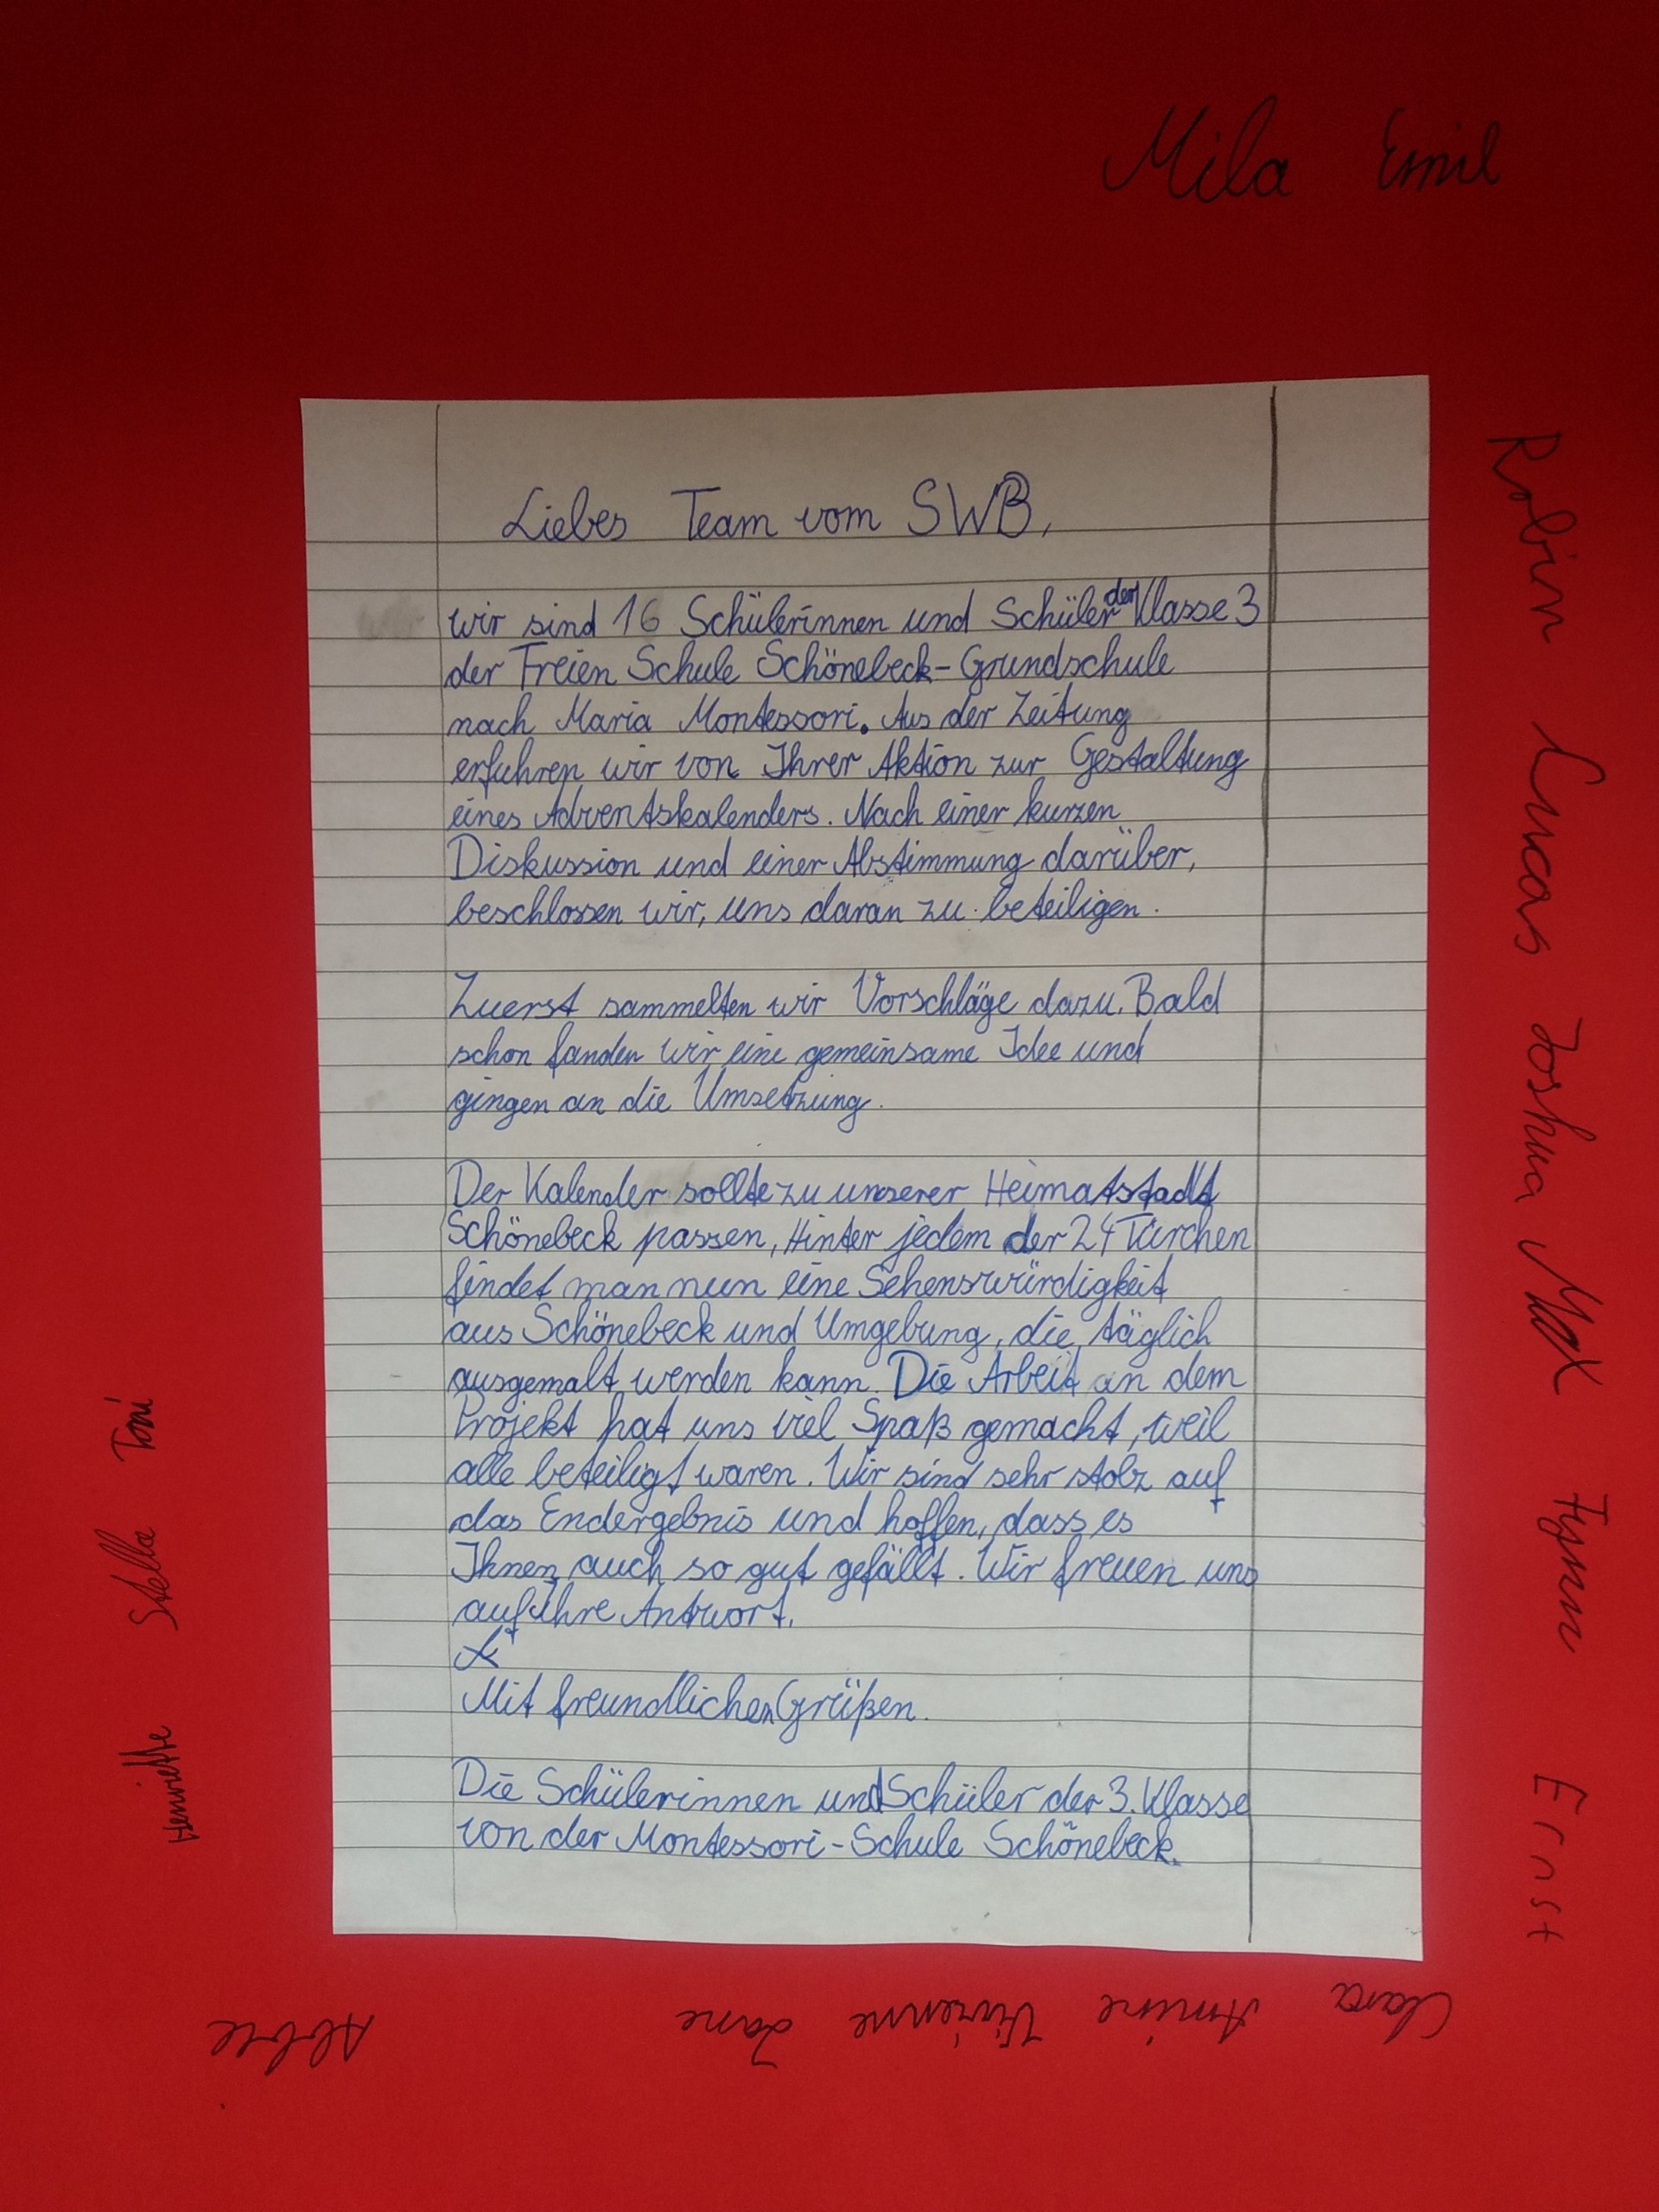 Mila Emil
Liebes Team vom SWB,
wir sind 16 Schülerinnen und Schüler der Klasse 3
der Freien Schule Schönebeck-Grundschule
nach Maria Montessori. Aus der Zeitung
erfuhren wir von Ihrer Aktion zur Gestaltung
eines Adventskalenders. Nach einer kurzen
Diskussion und einer Abstimmung darüber,
beschlossen wir, uns daran zu beteiligen.
Zuerst sammelten wir Vorschläge dazu. Bald
schon fanden wir eine gemeinsame Idee und
gingen an die Umsetzung.
Der Kalender sollte zu unserer Heimatstadt
Schönebeck passen, Hinter jedem der 24 Türchen
findet man nun eine Sehenswürdigkeit
aus Schönebeck und Umgebung, die täglich
ausgemalt werden kann. Die Arbeit an dem
Projekt hat uns viel Spaß gemacht, weil
alle beteiligt waren. Wir sind sehr stolz auf
das Endergebnis und hoffen, dass es
Ihnen auch so gut gefällt. Wir freuen uns
auf Ihre Antwort.
Mit freundlichen Grüßen.
Die Schülerinnen und Schüler der 3. Klasse
von der Montessori-Schule Schönebeck.
Robin Lucas Joshua Max Fynn Ernst
Clara Amire Vivienne Lane Abbie
Henriette Stella Toni